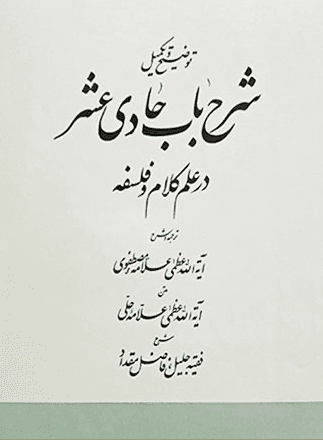 توضیح و تکمیل
شرح باب حادی عشر
در علم کلام و فلسفه
ترجمه و شرح
آیة اللّه عظمیٰ علامه مصطفوی
متن
آیة اللّه عظمیٰ علّامه حلّی
شرح
فقیه جلیل، فاضل مقداد